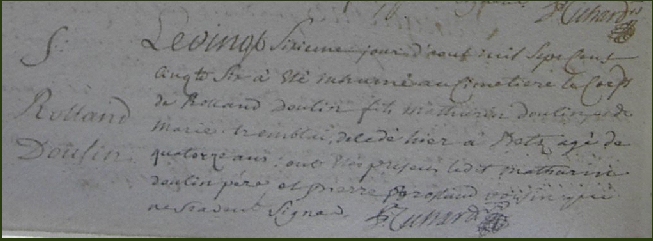 S.
Rolland
Doulin
Le vingt Sixieme jour d'aout mil Sept Cent
vingt Six à été inhumé au Cimetiere le Corps
de Rolland Doulin fils mathurin doulin et de
Marie tremblai, decedé hier à agé de
quatorze ans ont été presens ledit mathurin
doulin pére et pierre voisin qui
ne Scavent Signer.